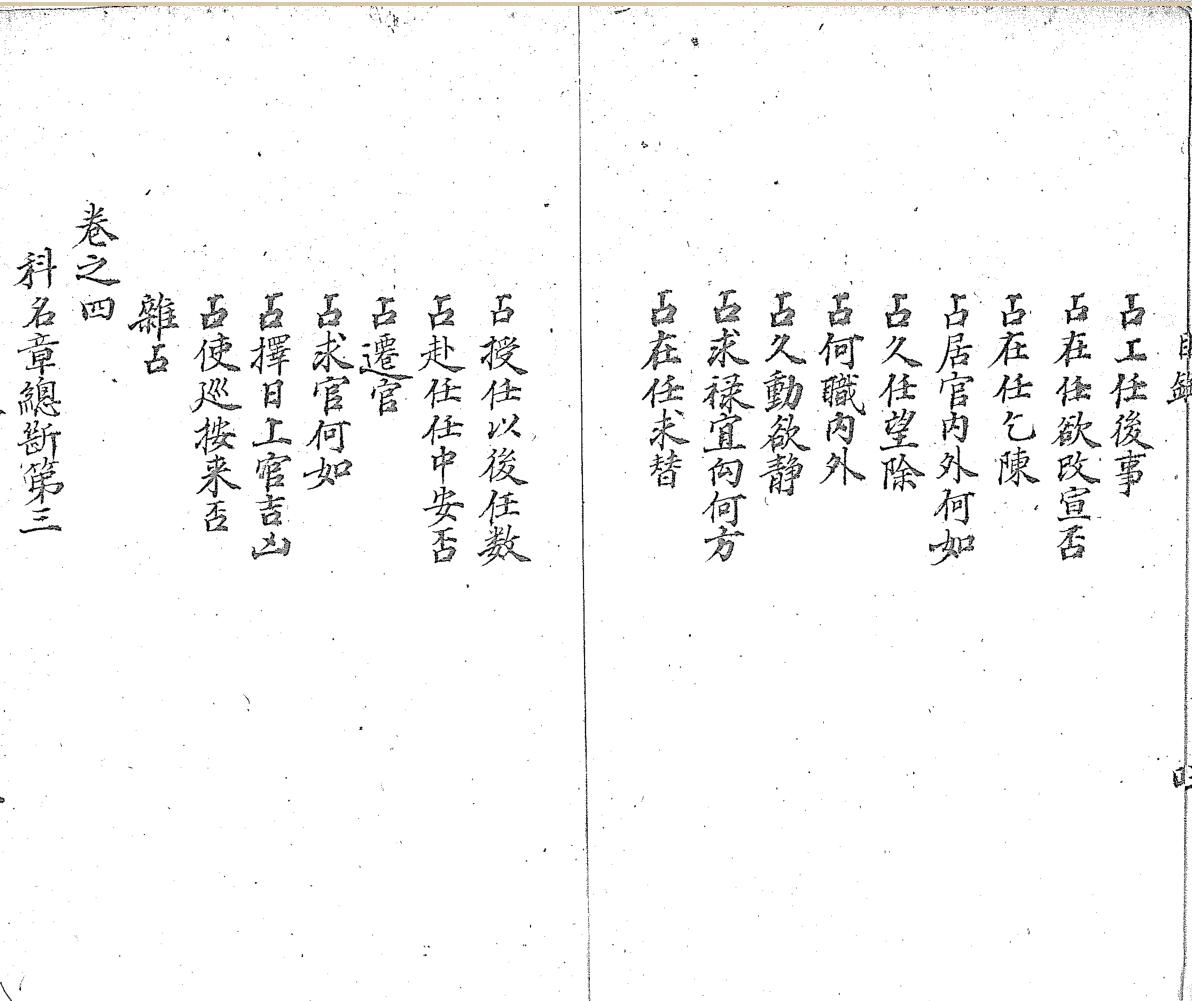 目錄
占上任後事
占在任欲改宣否
占在任乞陳
占居官内外何如
占久任望除
占何職内外
占久動欲静
占求禄宜向何方
占在任求替
占授任以後任数
占赴任任中安否
占遷官
占求官何如
占擇日上官吉凶
占使巡按来否
雜占
卷之四
科名章總斷第三